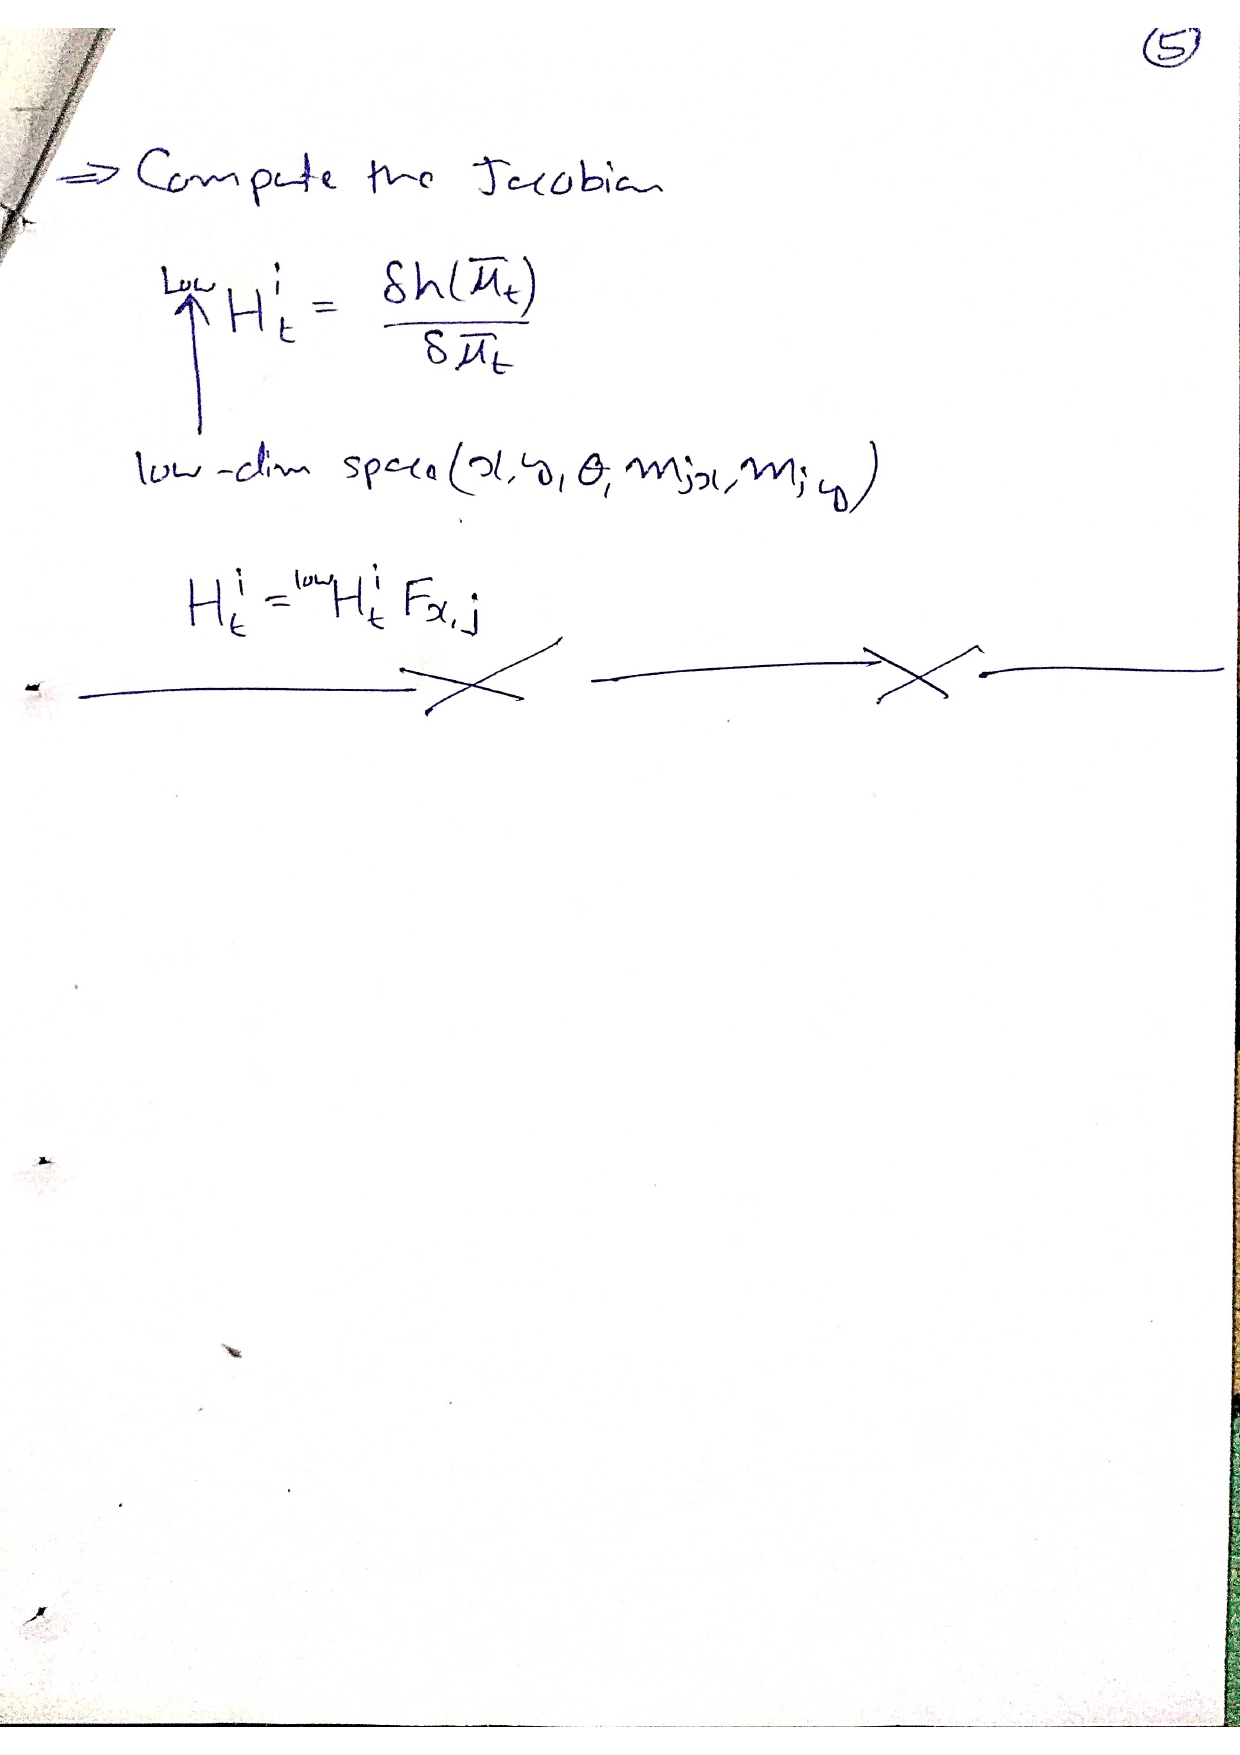 ⑤
⇒ Compute the Jacobian
ˡᵒʷHₜⁱ = δh(μ̄ₜ) / δμ̄ₜ
low-dim space (x, y, θ, mⱼₓ, mⱼ,y)
Hₜⁱ = ˡᵒʷHₜⁱ Fₓ,ⱼ